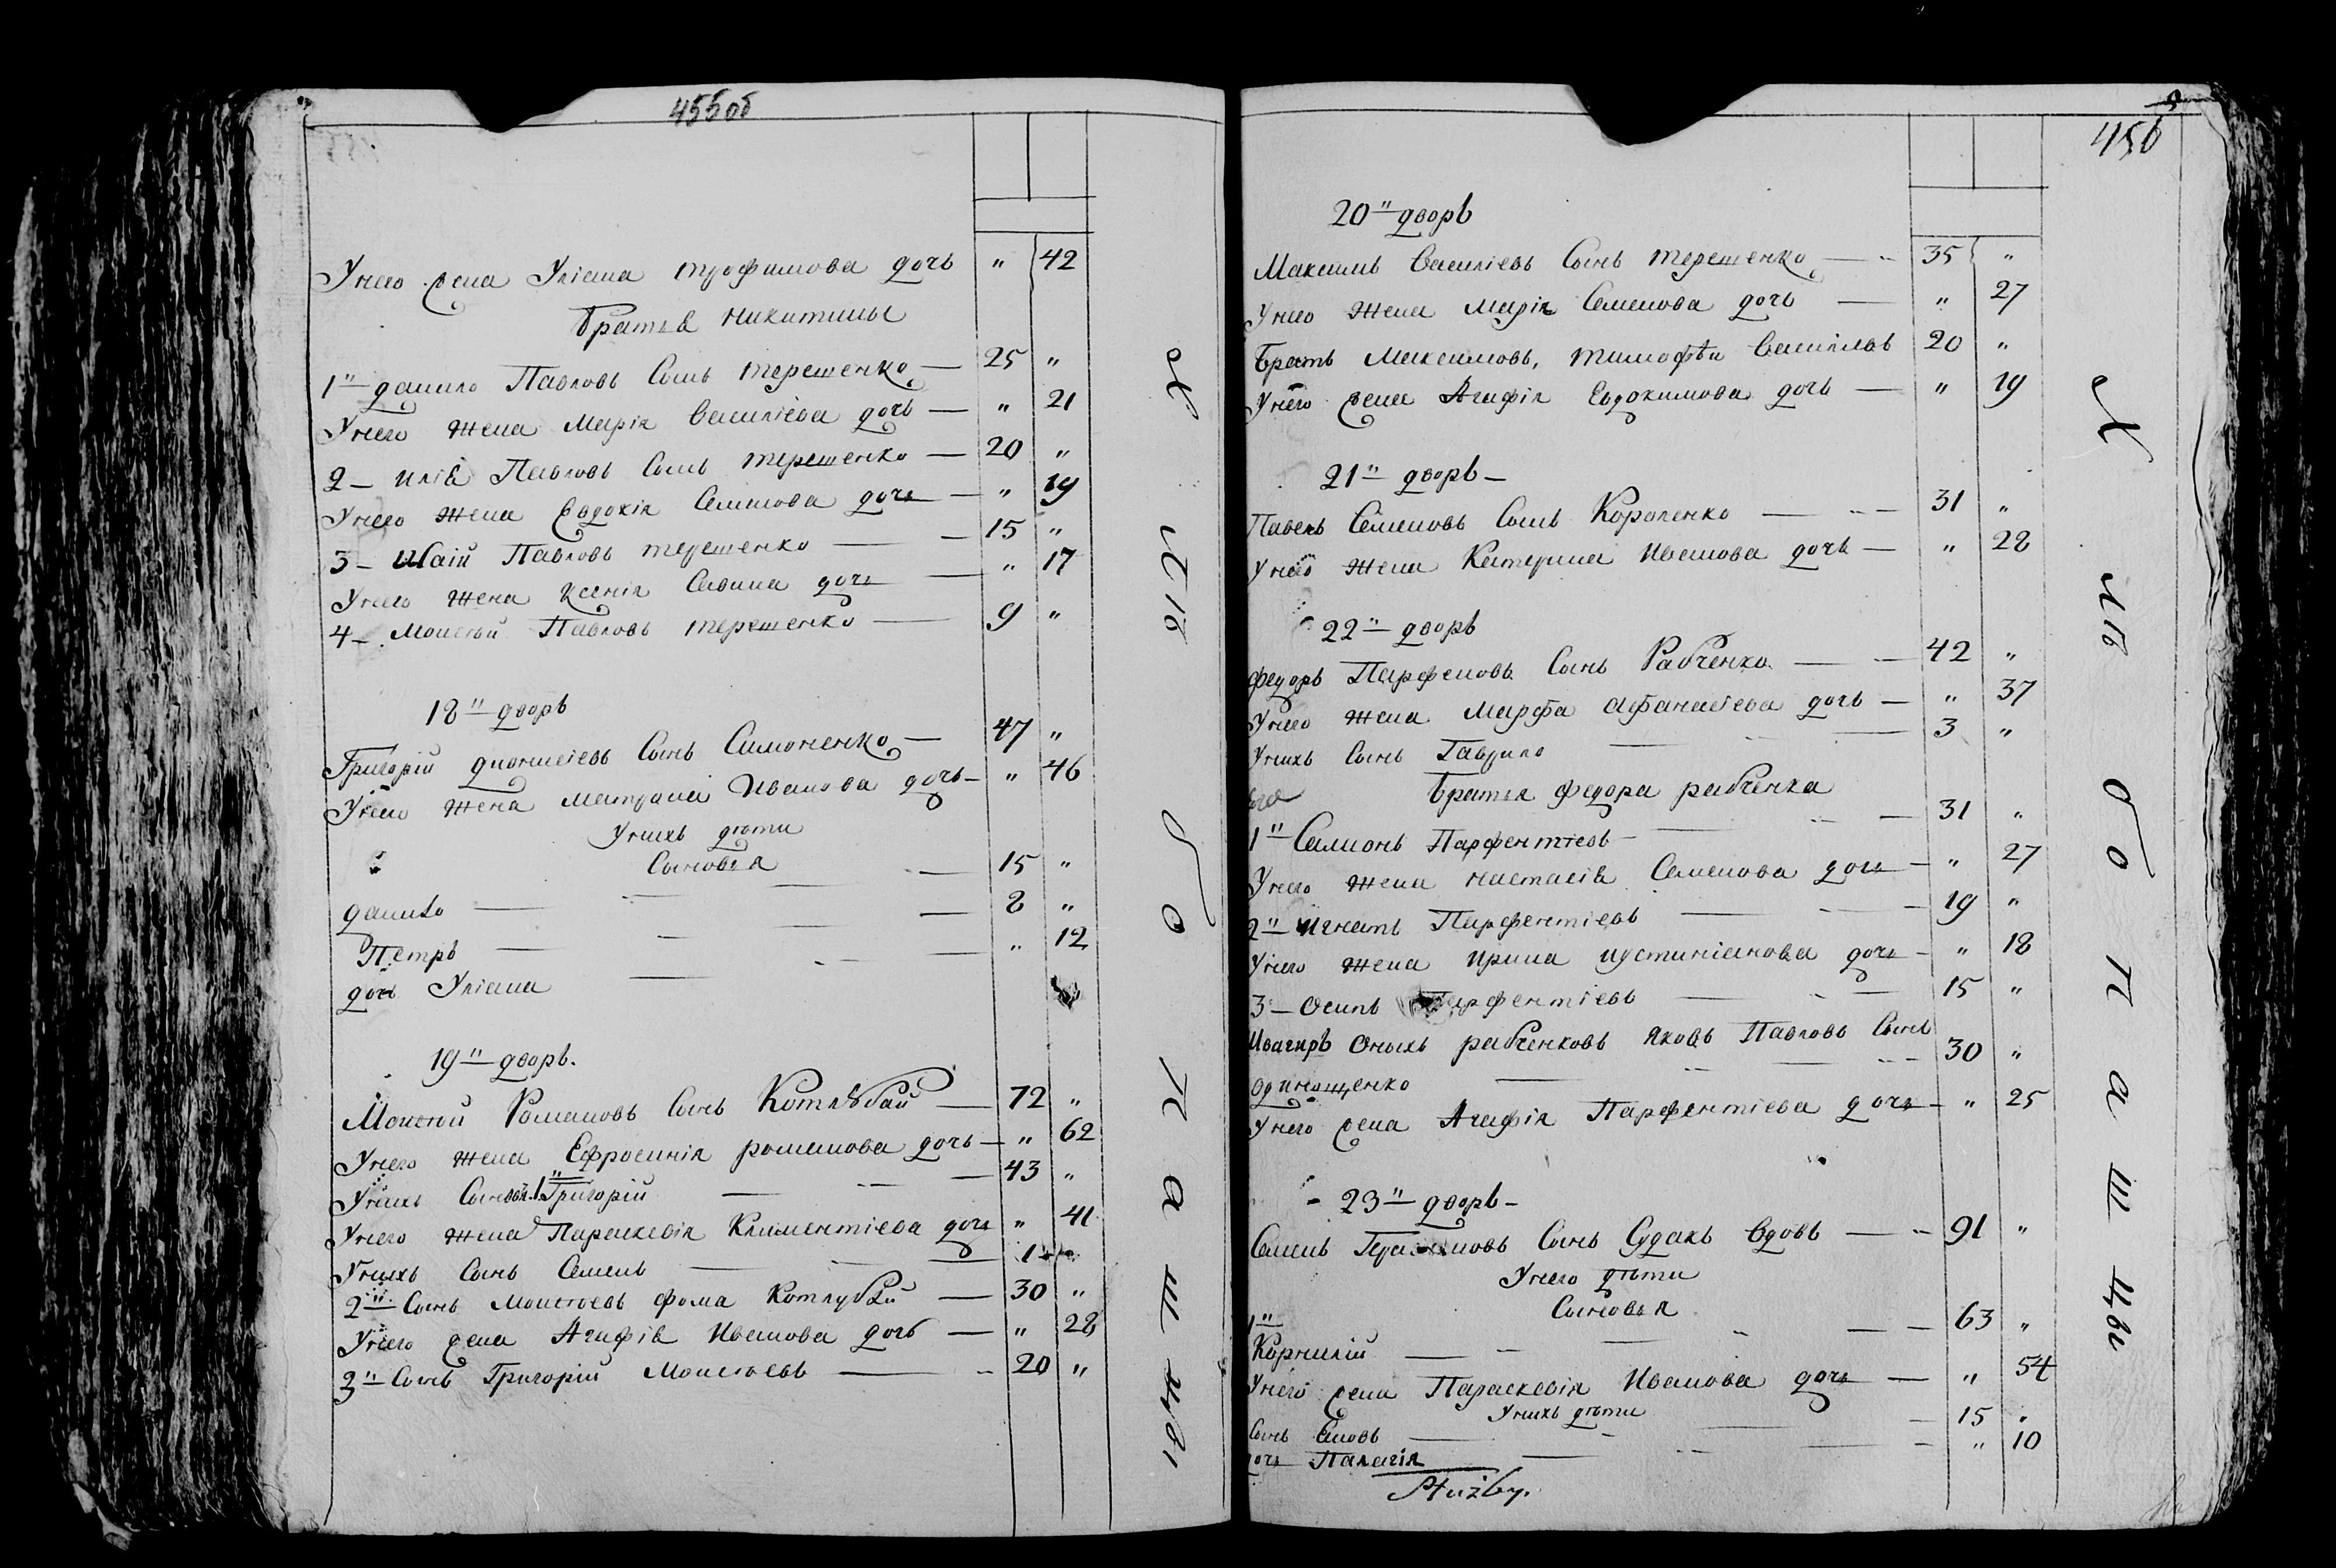 455об
Унего жена Уліана трофимова дочь " 42
Братья Никитины
1"– данило Павловъ Сынъ терешенко — 25 "
Унего жена Марія Василіева дочь — " 21
2 – илія Павловъ Сынъ терешенко — 20 "
Унего жена Евдокія Семенова дочь — " 19
3 – Исаій Павловъ терешенко — 15 "
Унего жена Ксенія Савина дочь — " 17
4 – Моисей Павловъ терешенко — 9 "
18"– дворъ
Григорій дионисіевъ Сынъ Симоненко — 47 "
Унего жена Матрона Иванова дочь – " 46
Унихъ дѣти
Сыновья
данило — 15 "
Петръ — 8 "
дочь Уліана — " 12
19"– дворъ.
Моисей Романовъ Сынъ Котлубай — 72 "
Унего жена Ефросинія романова дочь — " 62
Унихъ Сыновья 1" Григорій — 43 "
Унего жена Параскевія Климентіева дочь " 41
Унихъ Сынъ Семенъ — 1 "
2"– Сынъ Моисеевъ фома Котлубай — 30 "
Унего жена Агафія Иванова дочь — " 28
3"– Сынъ Григорій Моисеевъ — 20 "
Хлѣбопашцы
456
20"– дворъ
Максимъ Василіевъ Сынъ терешенко — 35 "
Унего жена Марія Семенова дочь — " 27
Братъ Максимовъ, тимофѣй Василіевъ 20 "
Унего жена Агафія Евдокимова дочь — " 19
21"– дворъ –
Павелъ Семеновъ Сынъ Короленко — 31 "
Унего жена Катерина Иванова дочь — " 28
22"– дворъ
федоръ Парфеновъ Сынъ Рабченко — 42 "
Унего жена Марфа Афанасіева дочь — " 37
Унихъ Сынъ Гаврило — 3 "
Братья федора рабченка
1"– Симионъ Парфентіевъ — 31 "
Унего жена настасія Семенова дочь — " 27
2"– Игнатъ Парфентіевъ — 19 "
Унего жена Ирина иустиніанова дочь – " 18
3 – Осипъ Парфентіевъ — 15 "
Швагиръ Оныхъ рабченковъ Яковъ Павловъ Сынъ
Одинощенко — 30 "
Унего жена Агафія Парфентіева дочь – " 25
23"– дворъ –
Семенъ Герасимовъ Сынъ Судакъ вдовъ — 91 "
Унего дѣти
Сыновья
1"–
Корнилій — 63 "
Унего жена Параскевія Иванова дочь — " 54
Унихъ дѣти
Сынъ — 15 "
дочь Палагія — " 10
Хлѣбопашцы